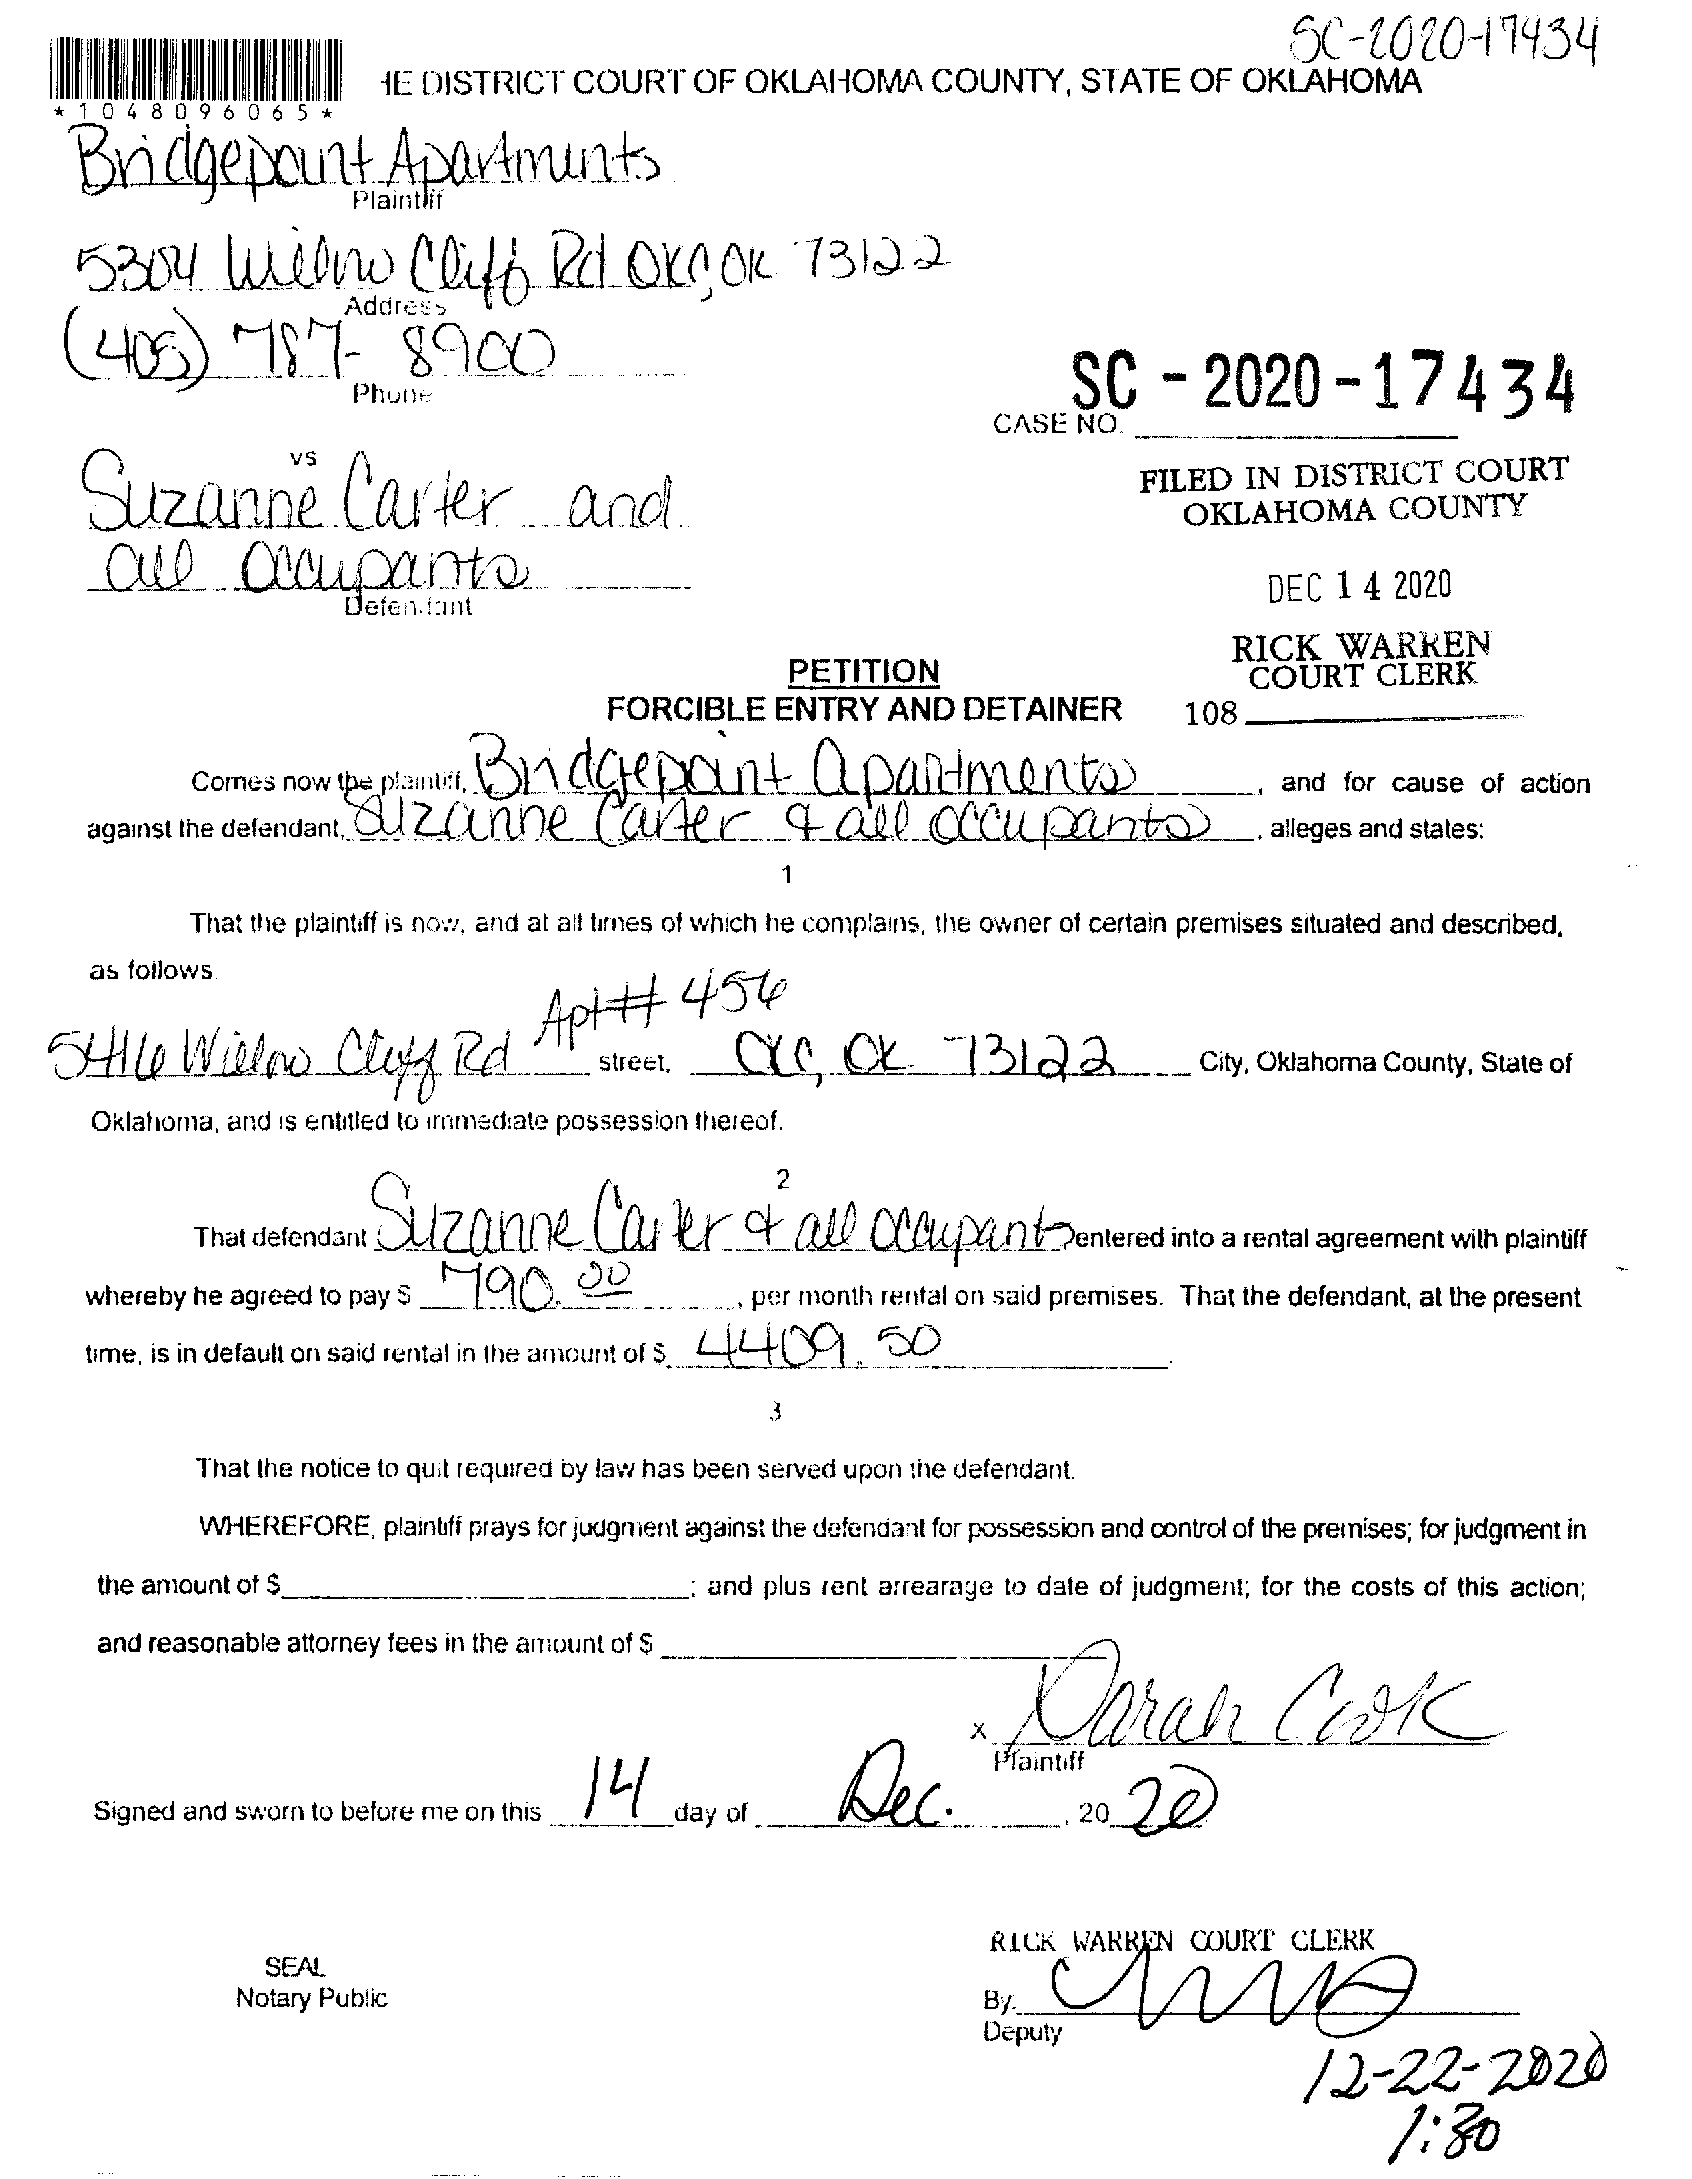 SC-2020-17434
HE DISTRICT COURT OF OKLAHOMA COUNTY, STATE OF OKLAHOMA
*1048096065*
Bridgepoint Apartments
Plaintiff
5304 Willow Cliff Rd OKC, OK 73122
Address
(405) 787-8900
Phone
SC - 2020 - 17434
CASE NO.
vs
Suzanne Carter and
all occupants
Defendant
FILED IN DISTRICT COURT
OKLAHOMA COUNTY
DEC 14 2020
RICK WARREN
COURT CLERK
108
PETITION
FORCIBLE ENTRY AND DETAINER
Comes now the plaintiff, Bridgepoint Apartments, and for cause of action
against the defendant, Suzanne Carter & all occupants, alleges and states:
1
That the plaintiff is now, and at all times of which he complains, the owner of certain premises situated and described,
as follows
5416 Willow Cliff Rd Apt# 456 street, OKC, OK 73122 City, Oklahoma County, State of
Oklahoma, and is entitled to immediate possession thereof.
2
That defendant Suzanne Carter & all occupants entered into a rental agreement with plaintiff
whereby he agreed to pay $ 790.00, per month rental on said premises. That the defendant, at the present
time, is in default on said rental in the amount of $ 4409.50
3
That the notice to quit required by law has been served upon the defendant.
WHEREFORE, plaintiff prays for judgment against the defendant for possession and control of the premises; for judgment in
the amount of $ ; and plus rent arrearage to date of judgment; for the costs of this action;
and reasonable attorney fees in the amount of $
x Sarah Cook
Plaintiff
Signed and sworn to before me on this 14 day of Dec., 20 20
RICK WARREN COURT CLERK
SEAL
Notary Public
By
Deputy
12-22-2020
1:30